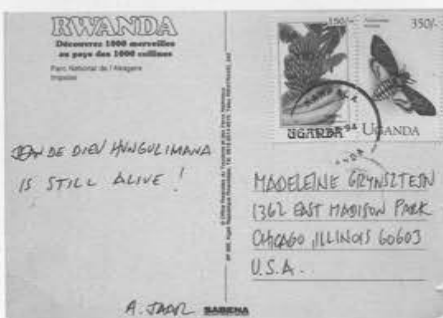 RWANDA
Découvrez 1000 merveilles
au pays des 1000 collines
Parc National de l'Akagera
Impalas
JEAN DE DIEU HUNGULIMANA
IS STILL ALIVE !
A. JAAR
SABENA
150/-
350/-
KAMPALA
94
UGANDA
UGANDA
MADELEINE GRYNSZTEJN
1362 EAST MADISON PARK
CHICAGO, ILLINOIS 60603
U.S.A.